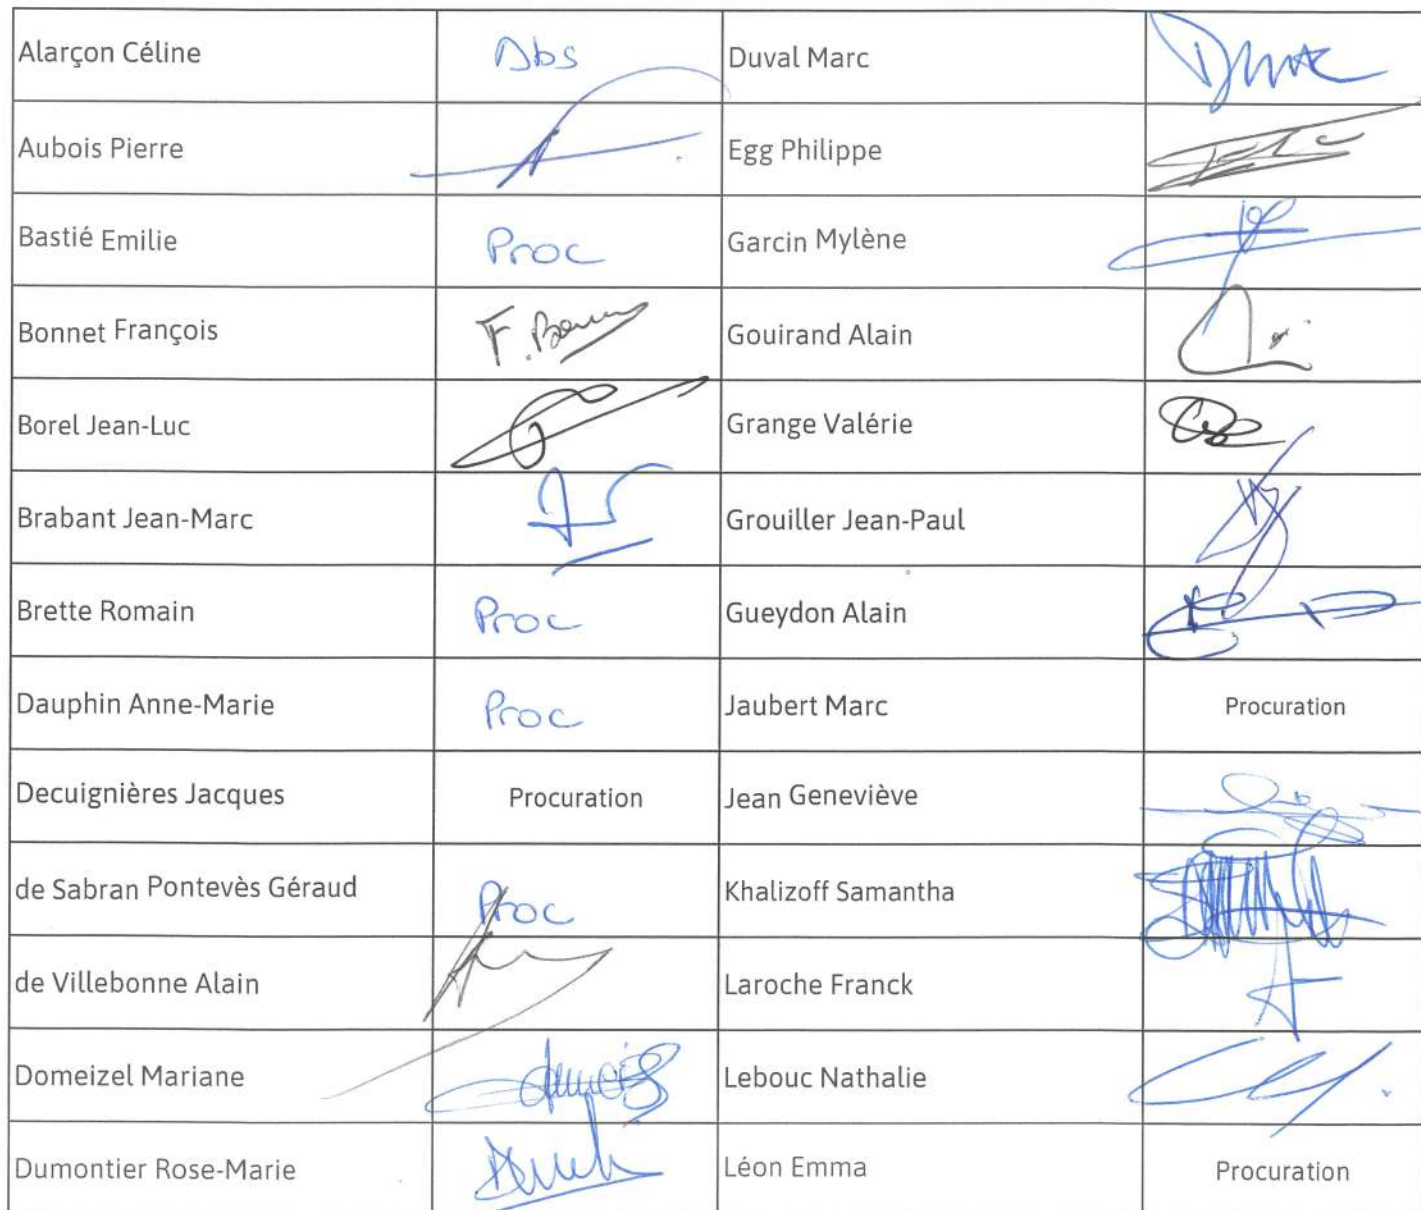 Alarçon Céline Abs Duval Marc
Aubois Pierre Egg Philippe
Bastié Emilie Proc Garcin Mylène
Bonnet François F. Gouirand Alain
Borel Jean-Luc Grange Valérie
Brabant Jean-Marc Grouiller Jean-Paul
Brette Romain Proc Gueydon Alain
Dauphin Anne-Marie Proc Jaubert Marc Procuration
Decuignières Jacques Procuration Jean Geneviève
de Sabran Pontevès Géraud Proc Khalizoff Samantha
de Villebonne Alain Laroche Franck
Domeizel Mariane Lebouc Nathalie
Dumontier Rose-Marie Léon Emma Procuration